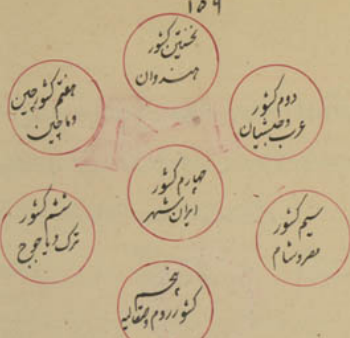 ۱۵۹
نخستین کشور
هندوان
دوم کشور
عرب و حبشیان
سیم کشور
مصر و شام
چهارم کشور
ایران شهر
پنجم
کشور روم و صقالبه
ششم کشور
ترک و یاجوج
هفتم کشور چین
و ماچین